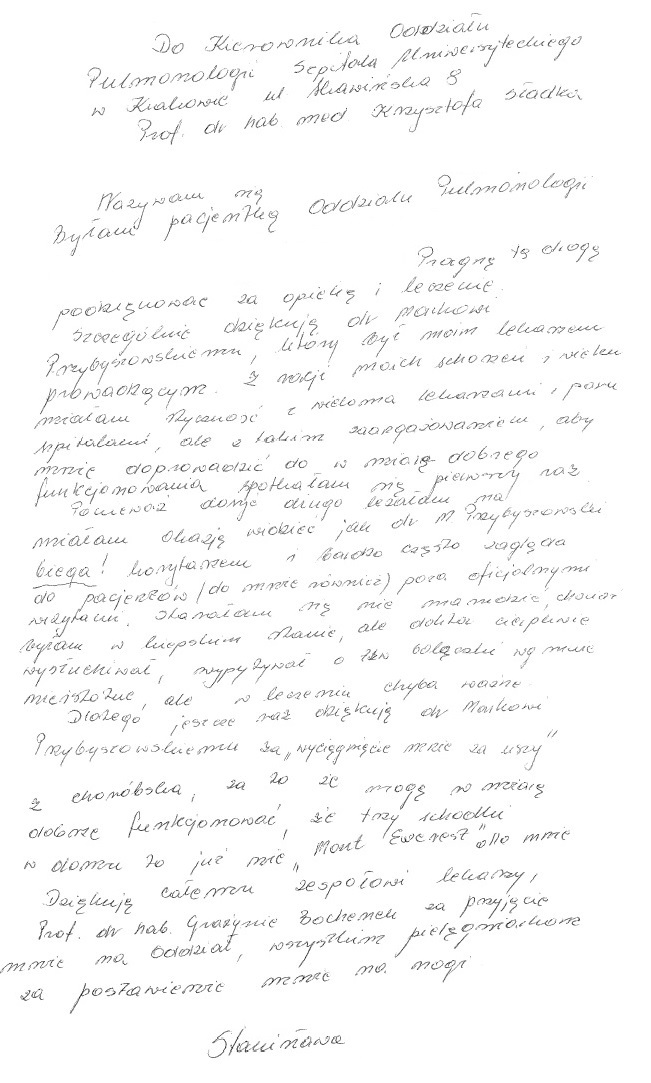 Do Kierownika Oddziału
Pulmonologii Szpitala Uniwersyteckiego
w Krakowie ul Skawińska 8
Prof. dr hab. med Krzysztofa Sładka
Nazywam się
Byłam pacjentką Oddziału Pulmonologii
Pragnę tą drogą
podziękować za opiekę i leczenie.
Szczególnie dziękuję dr Markowi
Przybyszowskiemu, który był moim lekarzem
prowadzącym. Z racji moich schorzeń i wieku
miałam styczność z wieloma lekarzami i paru
szpitalami, ale z takim zaangażowaniem, aby
mnie doprowadzić do w miarę dobrego
funkcjonowania spotkałam się pierwszy raz.
Ponieważ dosyć długo leżałam na
miałam okazję widzieć jak dr M Przybyszowski
biega! korytarzem i bardzo często zagląda
do pacjentów (do mnie również) poza oficjalnymi
wizytami. Starałam się nie marudzić, chociaż
byłam w kiepskim stanie, ale doktor cierpliwie
wysłuchiwał, wypytywał o tzw bolączki wg mnie
nieistotne, ale w leczeniu chyba ważne.
Dlatego jeszcze raz dziękuję dr Markowi
Przybyszowskiemu za „wyciągnięcie mnie za uszy"
z choróbska, za to że mogę w miarę
dobrze funkcjonować, że trzy schodki
w domu to już nie „Mont Ewerest" dla mnie
Dziękuję całemu zespołowi lekarzy,
Prof. dr hab. Grażynie Bochenek za przyjęcie
mnie na Oddział, wszystkim pielęgniarkom
za postawienie mnie na nogi.
Stanisława